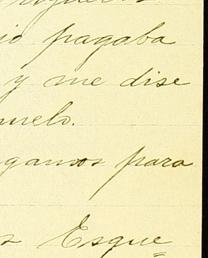 io pagaba
y me dise
uelo.
gamos para
s Esque